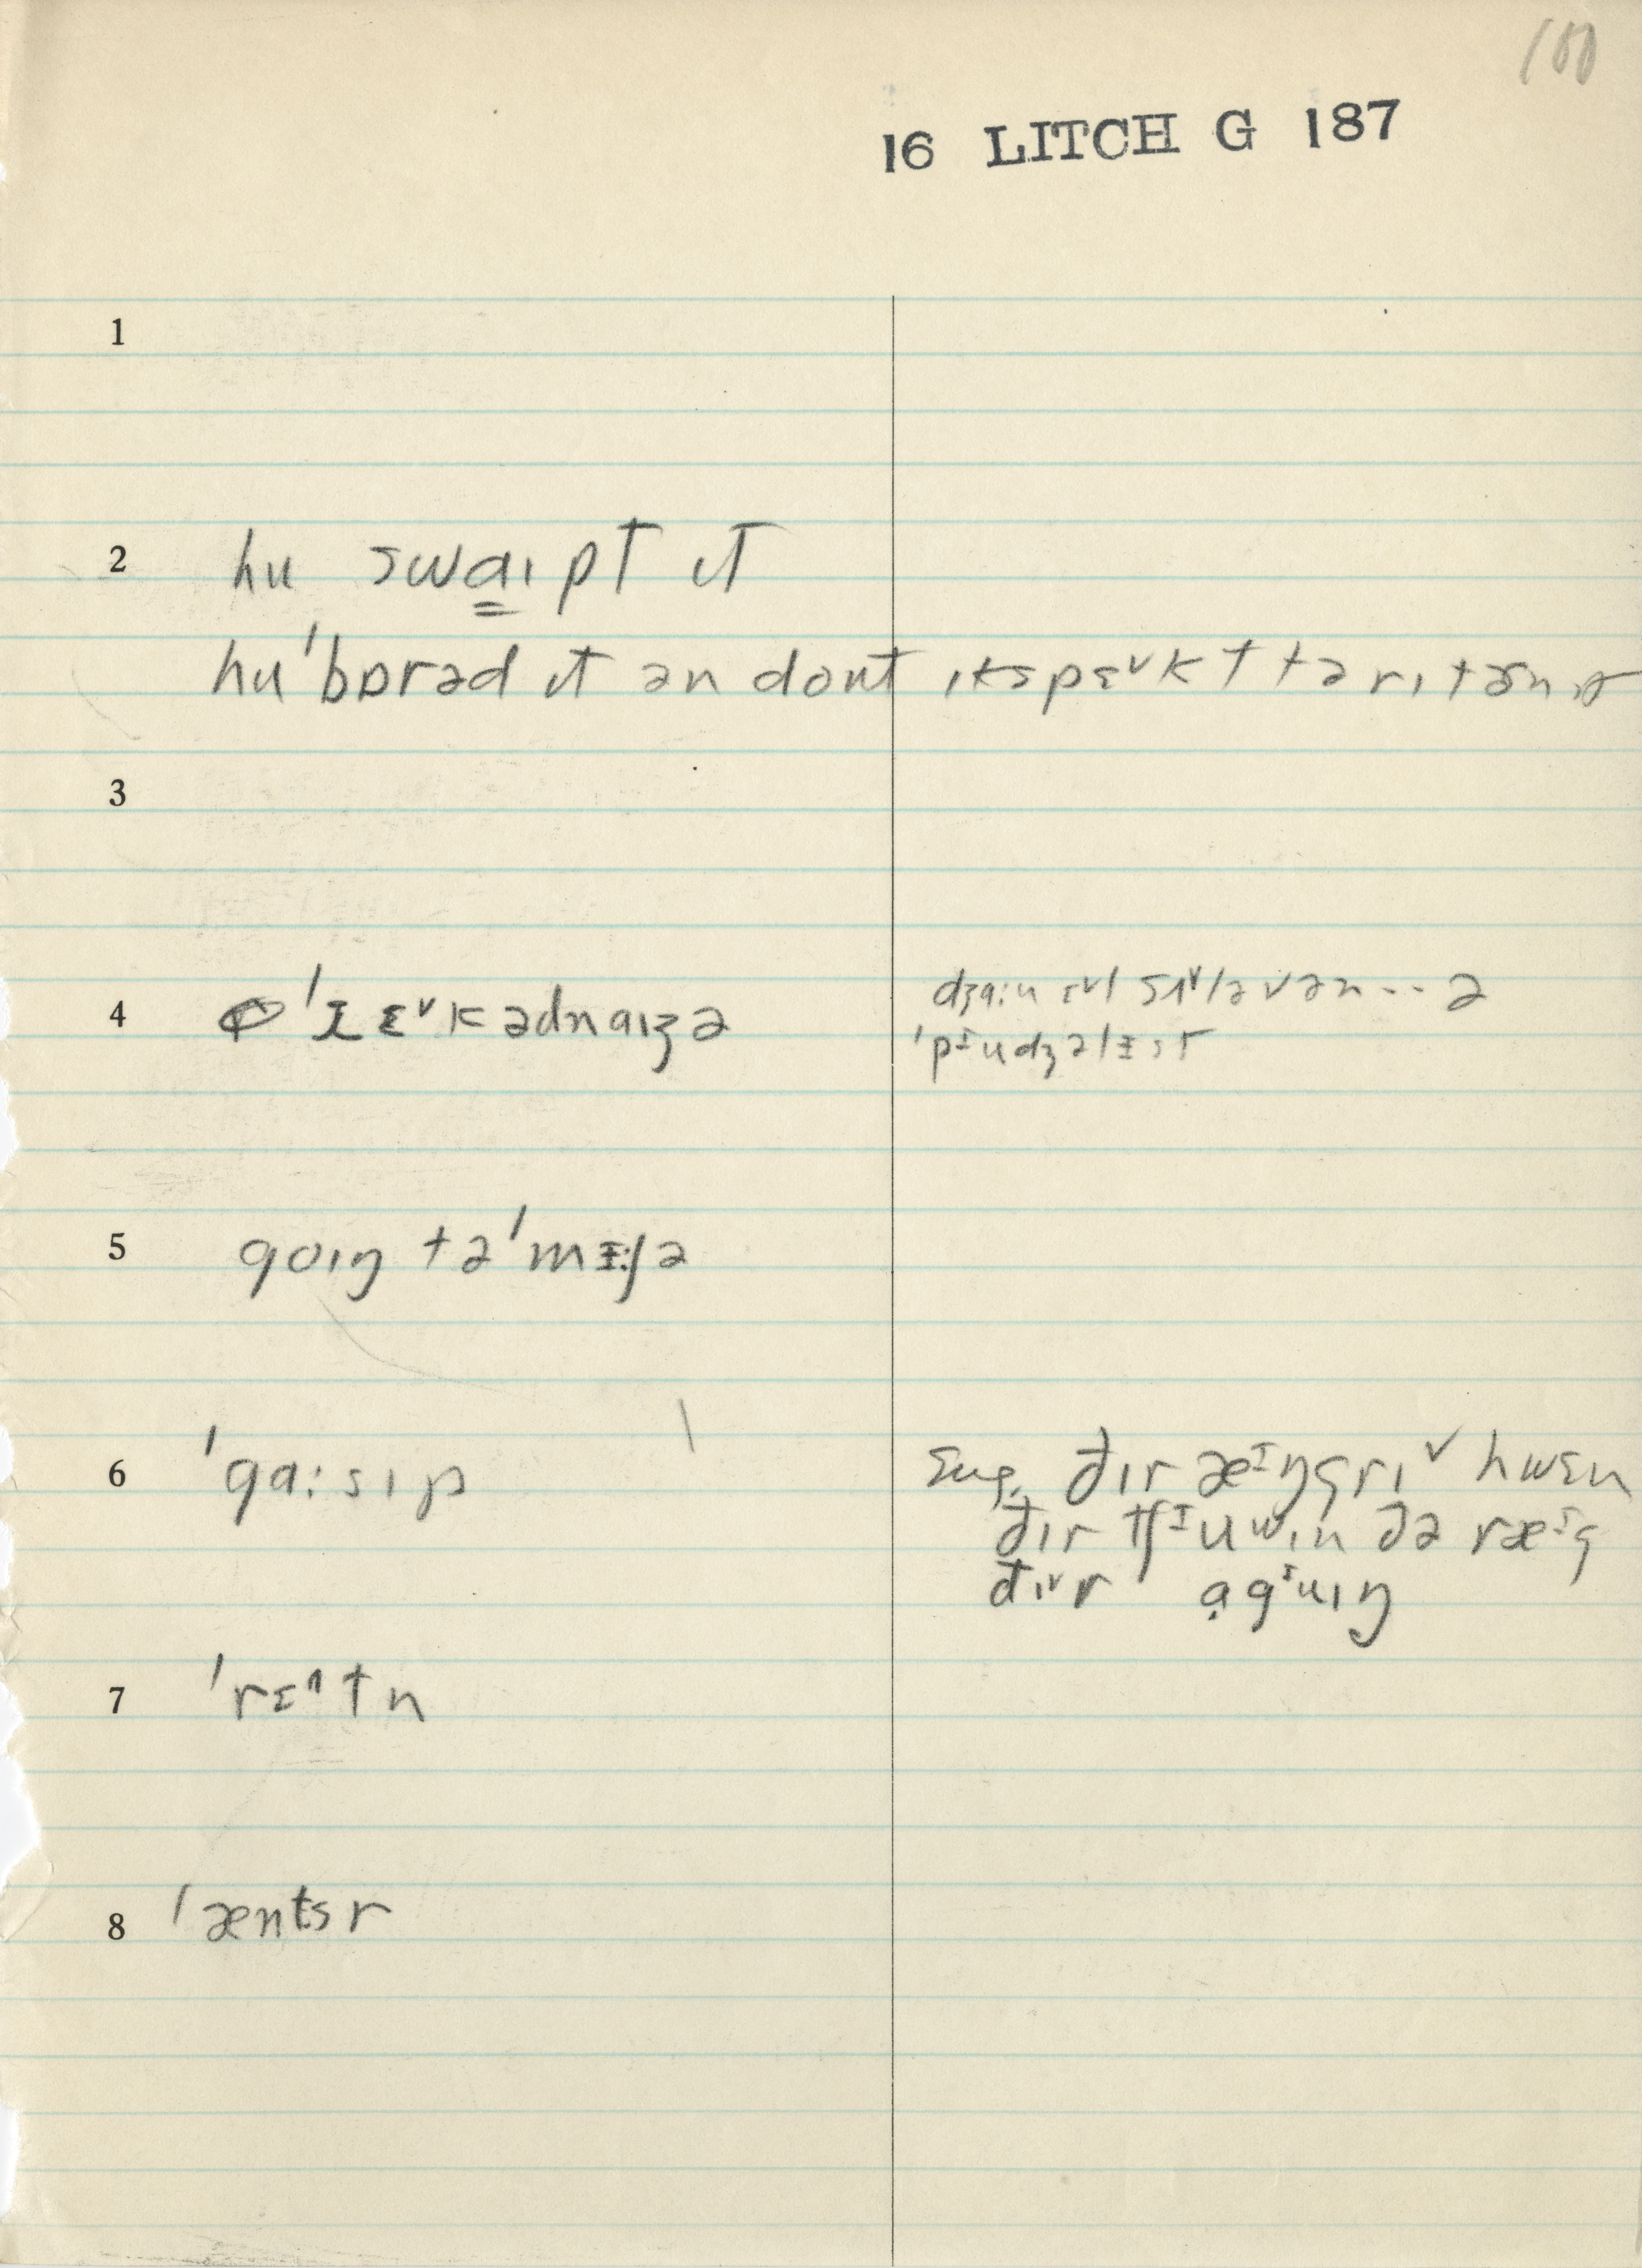 100
16 LITCH G 187
1
2 hu swa̳ɪpt ɪt
hu ˈbɒrəd ɪt ən dont ɪkspɛ˅kt tə rɪtɚn ɪt
3
4 ˈrɛ˅kədnaɪʒə
dʒɑ:n
ˈpᵻudʒəlɪst
5 goɪŋ tə ˈmɪ:ʃə
6 ˈgɑ:sɪp
sug. ðɪr æᶦŋgrɪ˅ hwɛn
ðɪr tʃᶦuwɪn ðə ræᶦg
ðɪ˅r ɑ̣gᶦuɪŋ
7 ˈrɛ^tn
8 ˈæntsr